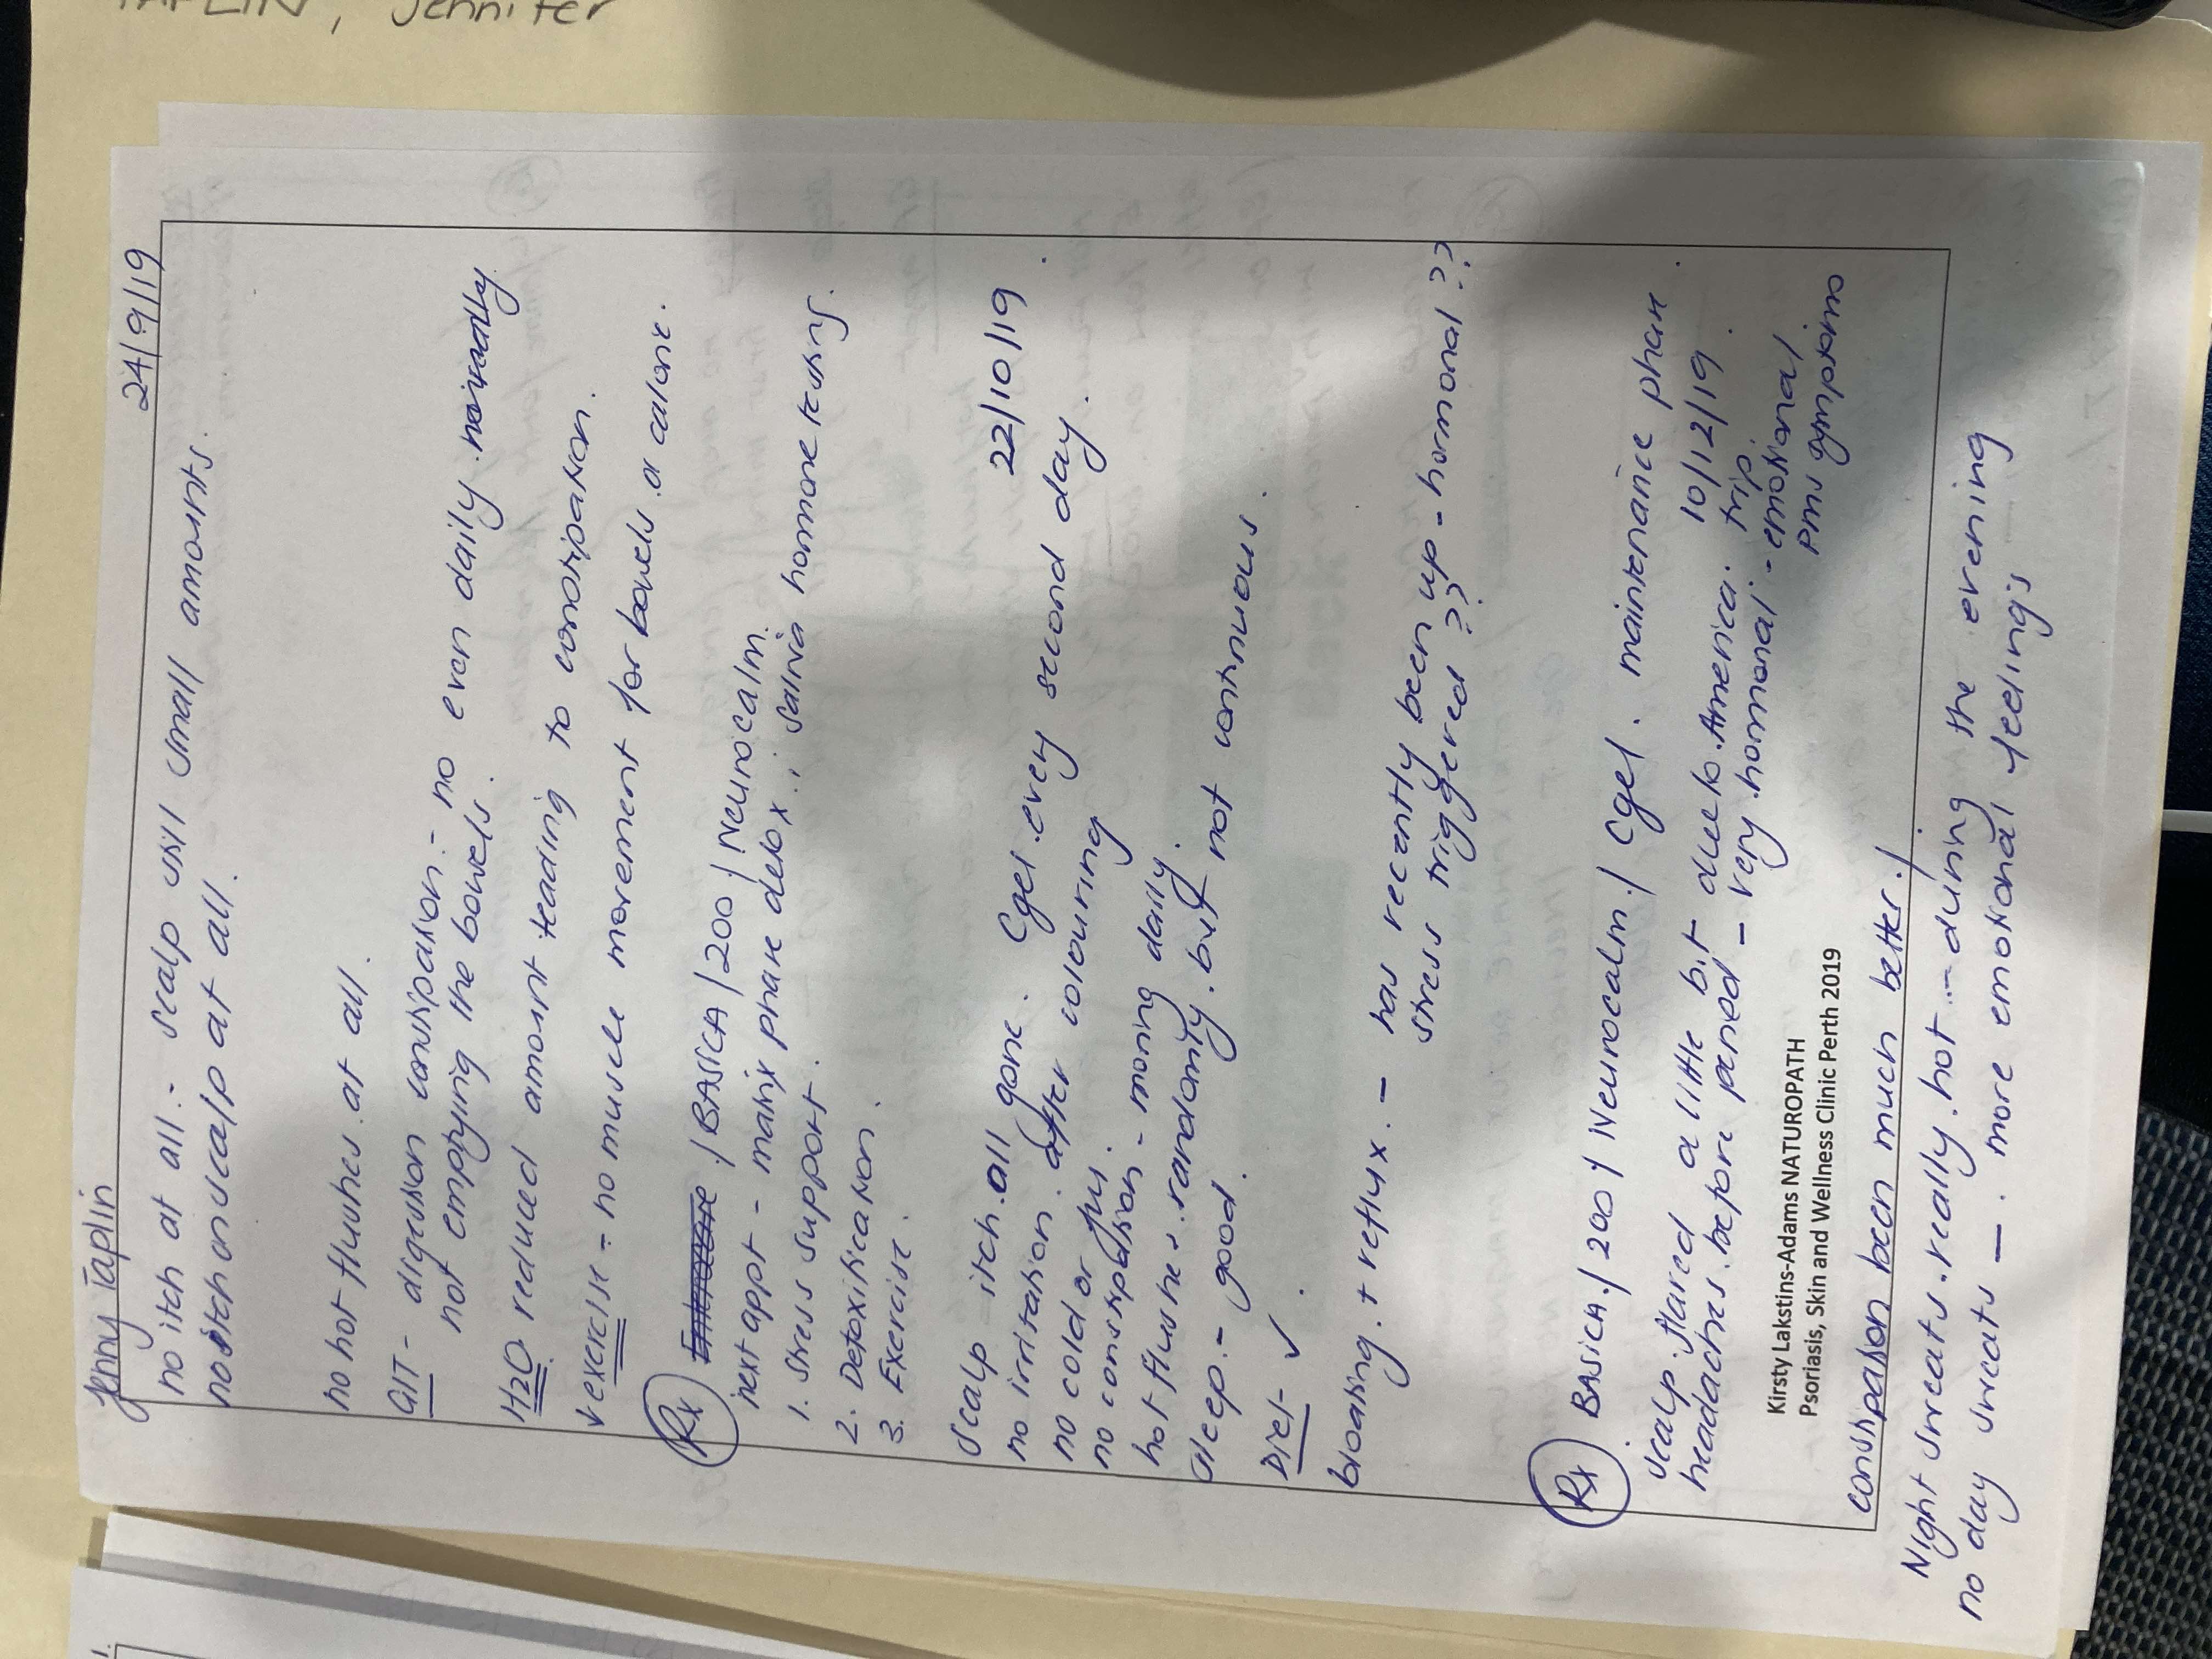 TAPLIN, Jennifer
Jenny Taplin 24/9/19
no itch at all - scalp still small amounts.
no itch on scalp at all.
no hot flushes at all.
GIT - digestion constipation - no even daily normally
not emptying the bowels.
H2O reduced amount leading to constipation.
↓ exercise = no muscle movement for bowels or calone.
Rx / BASICA / 200 / Neurocalm.
next appt - matrix phase detox; saliva hormone testing.
1. Stress support.
2. Detoxification.
3. Exercise.
22/10/19
scalp itch all gone. Cgel every second day.
no irritation after colouring
no cold or flu.
no constipation - moning daily.
hot flushes randomly but not continuous.
sleep - good.
Diet ✓.
bloating + reflux. - has recently been up - hormonal ??
stress triggered ??
Rx BASICA / 200 / Neurocalm / Cgel. maintenance phase
10/12/19.
scalp flared a little bit due to America trip.
headaches before period - very hormonal - emotional
pms symptoms
Kirsty Lakstins-Adams NATUROPATH
Psoriasis, Skin and Wellness Clinic Perth 2019
constipation been much better!
Night sweats really hot - during the evening
no day sweats - more emotional feelings